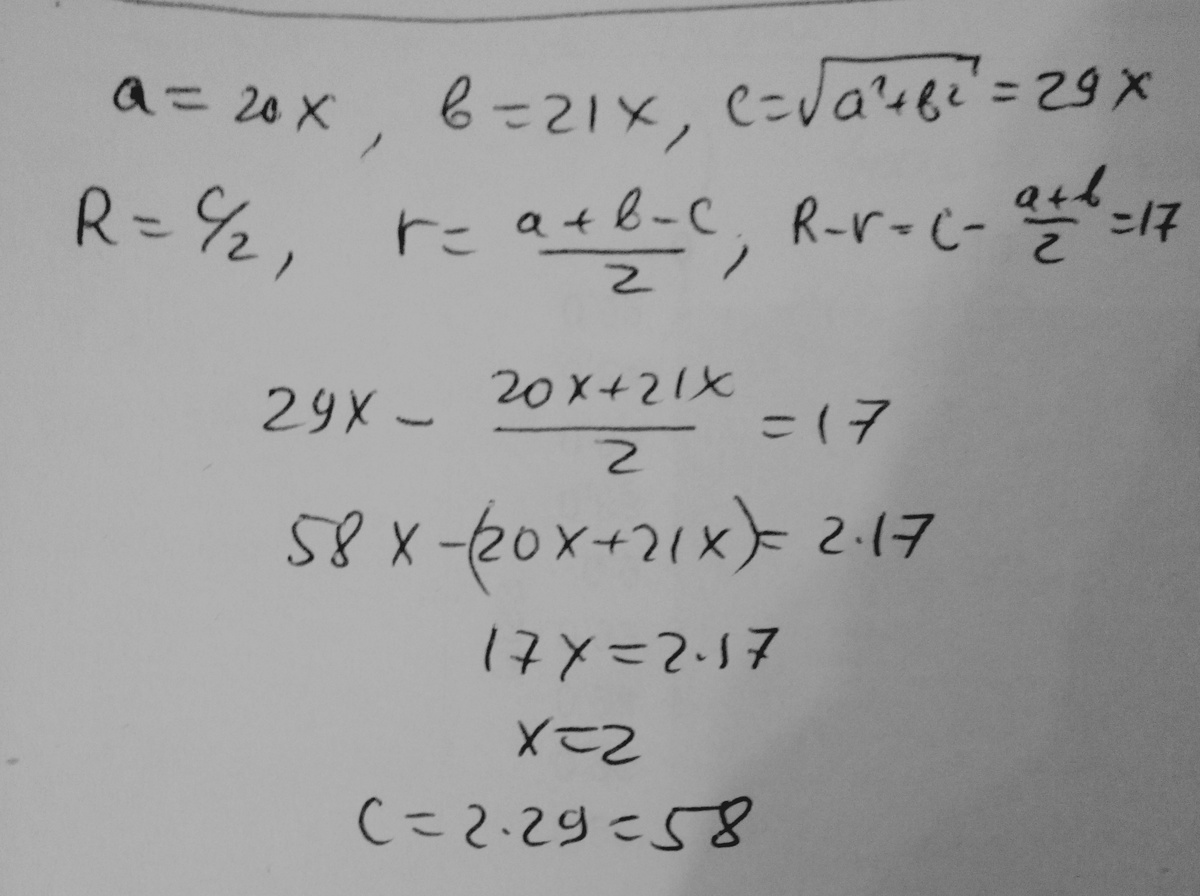 a = 20x, в = 21x, c = √(a²+в²) = 29x
R = c/2, r = (a + в - c)/2, R-r = c - (a+b)/2 = 17
29x - (20x+21x)/2 = 17
58x - (20x+21x) = 2·17
17x = 2·17
x = 2
c = 2·29 = 58